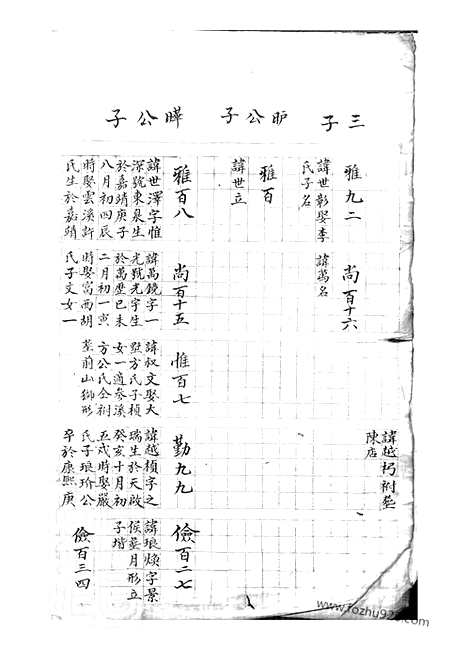 三子
雅九二
諱世彰娶李
氏子名
尚百十六
諱萬名
諱越枵祔塟
陳店
昈公子
雅百
諱世立
曄公子
雅百八
諱世澤字惟
深號東泉生
於嘉靖庚子
八月初四辰
時娶雲溪許
氏生於嘉靖
尚百十五
諱萬鏡字一
光號光宇生
於萬歷己未
二月初一寅
時娶富西胡
氏子文女一
惟百七
諱叔文娶大
墅方氏子楨
女一適參溪
方公氏仝祔
塟前山獅形
勤九九
諱越楨字之
瑞生於天啟
癸亥十月初
五戌時娶嚴
氏子琅玠公
卒於康熙庚
儉百二七
諱琅煥字景
侯塟月形立
子堦
儉百三四
www.fozhu920.com